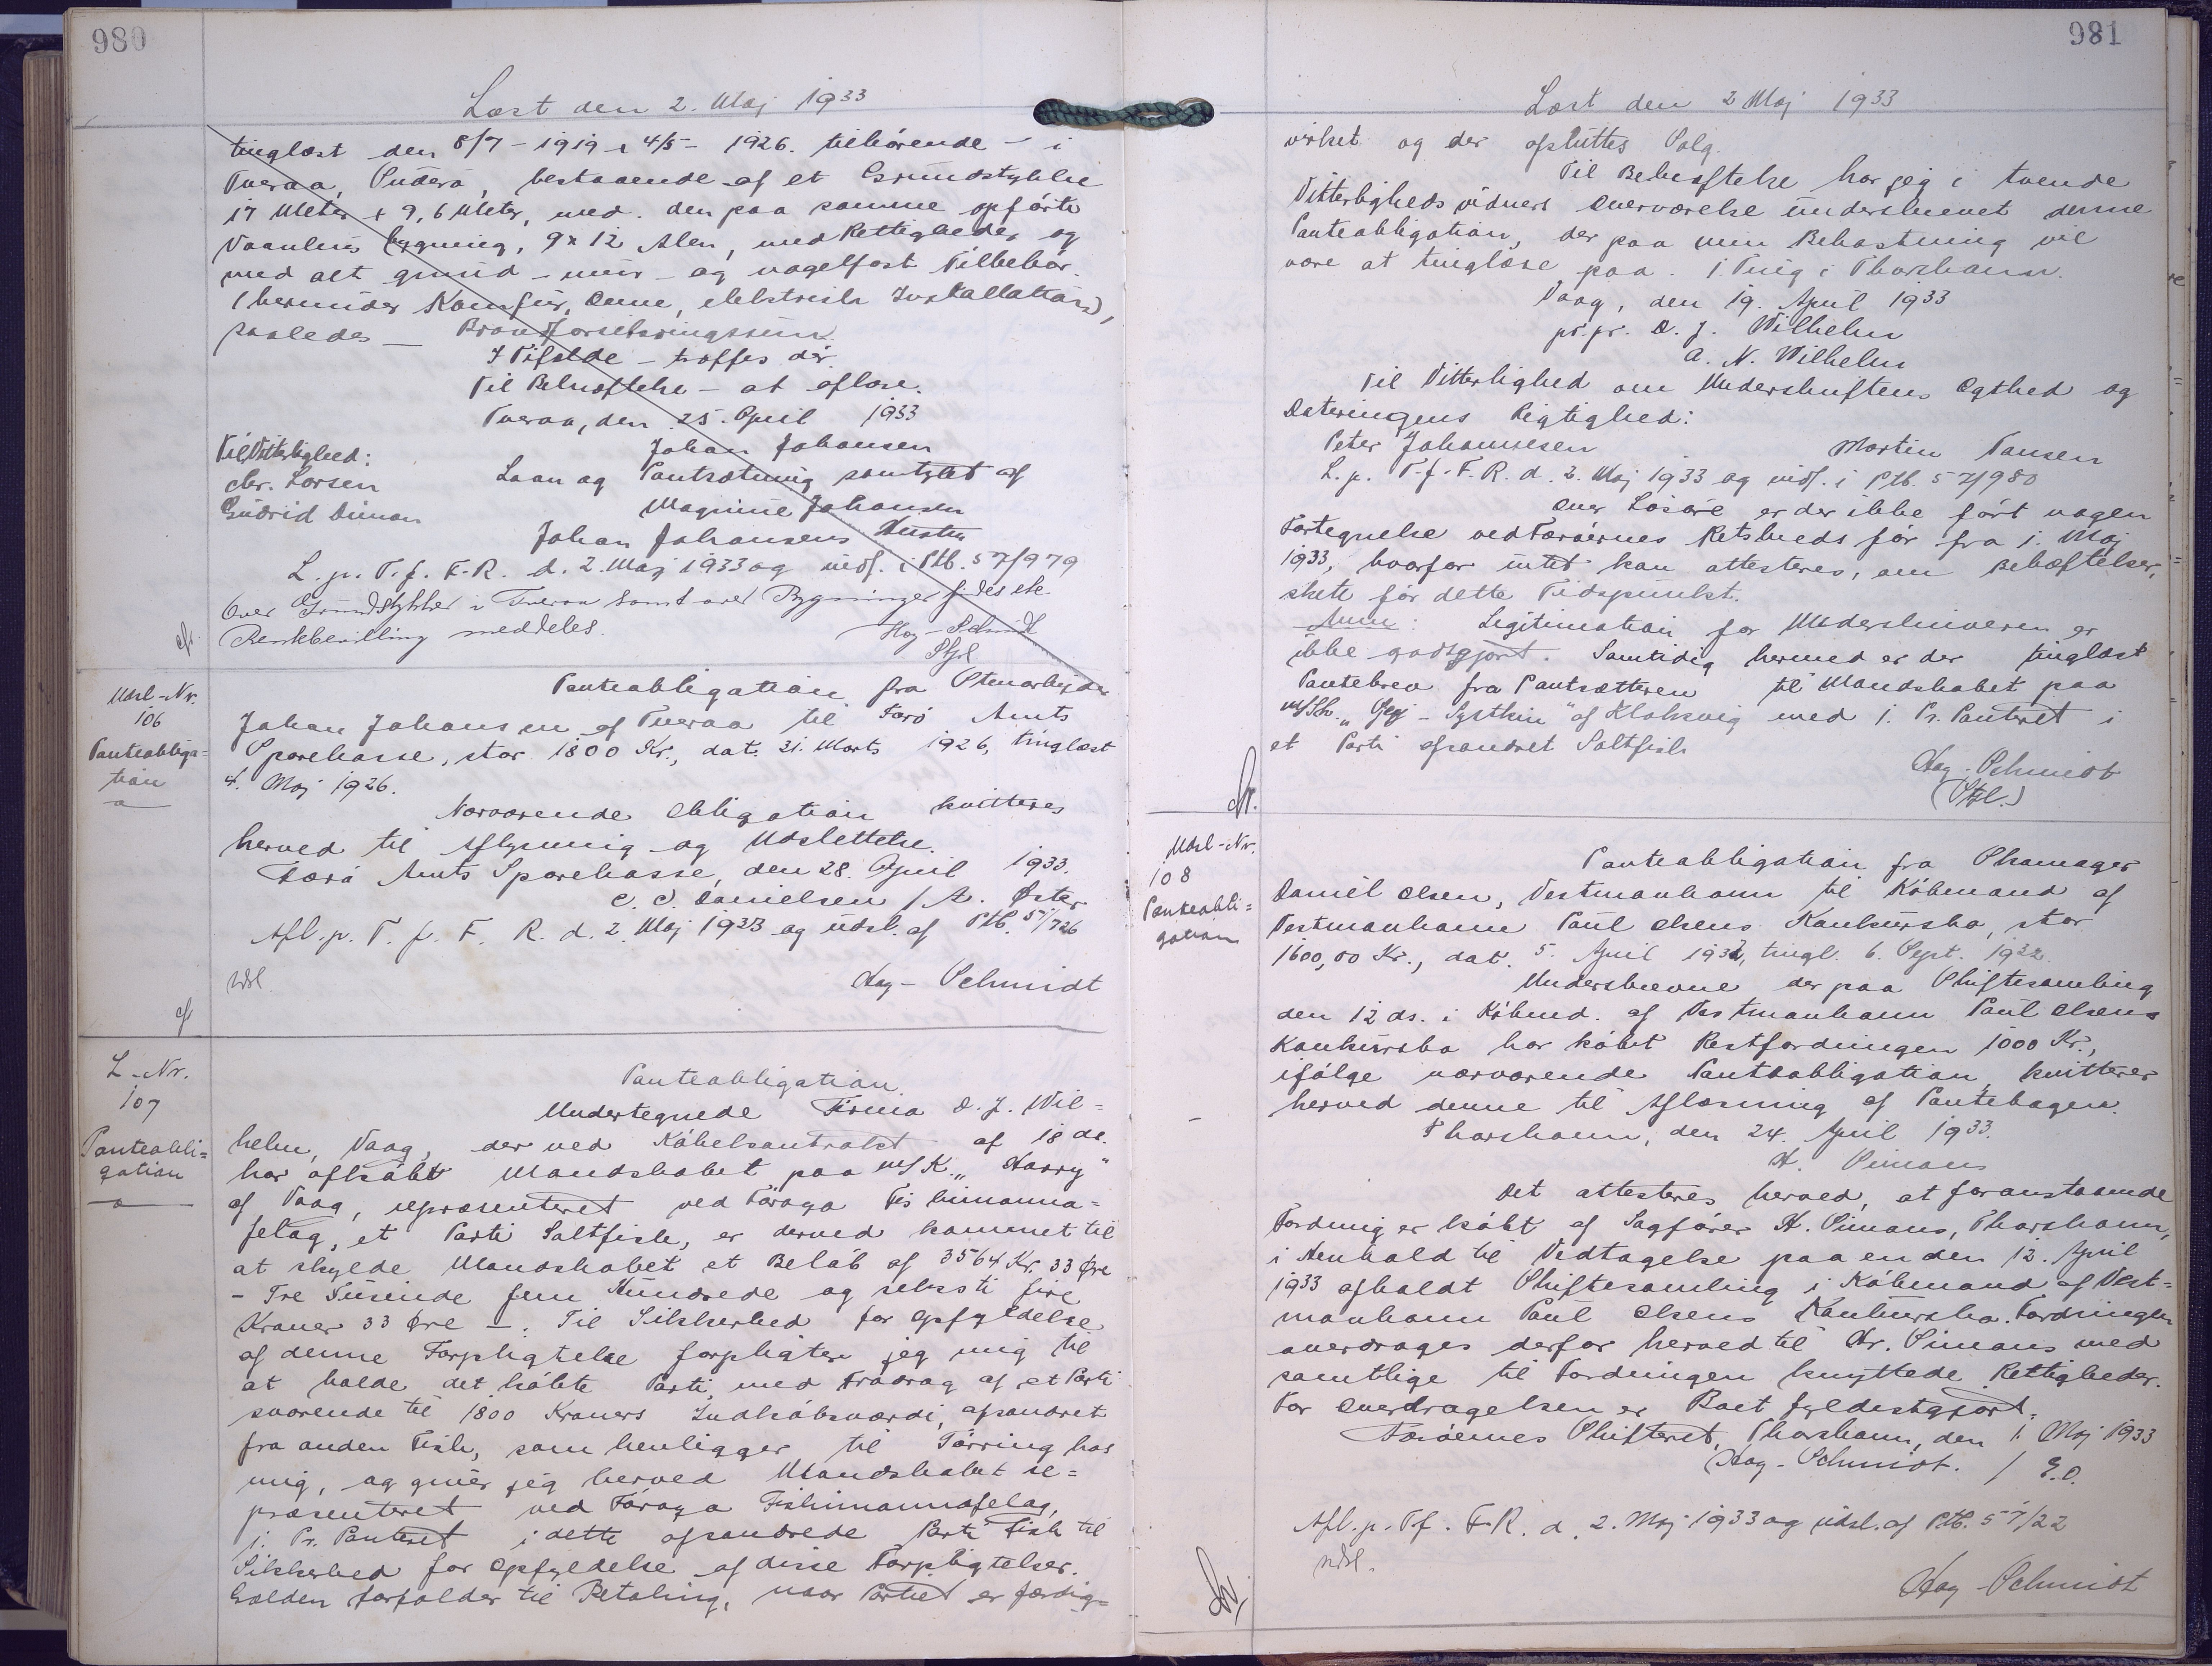 980
Læst den 2. Maj 1933
tinglæst den 8/7 - 1919 & 4/5 - 1926. tilhørende - i
Tveraa, Suderø, bestaaende af et Grundstykke
17 Meter x 9,6 Meter, med den paa samme opførte
Vaaningsbygning, 9 x 12 Alen, med Rettigheder og
med alt grund- mur- og nagelfast Tilbehør
(herunder Komfur, Ovne, elektrisk Installation),
saaledes — Brandforsikringssum
I Tilfælde - træffes dér.
Til Bekræftelse - at aflæse.
Tveraa, den 25. April 1933
Til Vitterlighed: Johan Johansen
Chr. Larsen Laan og Pantsætning samtykt af
Gudrid Dimon Magnine Johansen
Johan Johansens Hustru
L. p. T. f. F. R. d. 2. Maj 1933 og indf. i Ptb. 57/979
Over Grundstykker i Tveraa samt over Bygninger findes etc.
Renkbevilling meddeles. Høg-Schmidt
Stfl
Udsl-Nr.
106
Panteobliga=
tion
Panteobligation fra Stenarbejder
Johan Johansen af Tveraa til Færø Amts
Sparekasse, stor 1800 Kr., dat. 31. Marts 1926, tinglæst
4. Maj 1926.
Nærværende Obligation kvitteres
herved til Aflysning og Udslettelse.
Færø Amts Sparekasse, den 28. April 1933.
C. C. Danielsen / A. Øster
Afl. p. T. f. F. R. d. 2. Maj 1933 og udsl. af Ptb. 51/726
Høg- Schmidt
L-Nr.
107
Panteobli=
gation
Panteobligation
Undertegnede Firma D. J. Wil=
helm, Vaag, der ved Købekontrakt af 18 ds.
har afkøbt Mandskabet paa M/K „Harry"
af Vaag, repræsenteret ved Föroya Fiskimanna=
felag, et Parti Saltfisk, er derved kommet til
at skylde Mandskabet et Beløb af 3564 Kr. 33 Øre
- Tre Tusinde fem Hundrede og seksti fire
Kroner 33 Øre —. Til Sikkerhed for Opfyldelse
af denne Forpligtelse forpligter jeg mig til
at holde det købte Parti, med Fradrag af et Parti
svarende til 1800 Kroners Indkøbsværdi, afsondret
fra anden Fisk, som henligger til Tørring hos
mig, og giver jeg herved Mandskabet re=
præsenteret ved Föroya Fiskimannafelag,
1. Pr. Panteret i dette afsondrede Parti Fisk til
Sikkerhed for Opfyldelse af disse Forpligtelser.
Gælden forfalder til Betaling, naar Partiet er færdig=
981
Læst den 2 Maj 1933
virket og der afsluttes Salg.
Til Bekræftelse har jeg i tvende
Vitterlighedsvidners Overværelse underskrevet denne
Panteobligation, der paa min Bekostning vil
være at tinglæse paa 1. Ting i Thorshavn.
Vaag, den 19. April 1933
pr. pr. D. J. Wilhelm
A. N. Wilhelm
Til Vitterlighed om Underskriftens Ægthed og
Dateringens Rigtighed:
Peter Johannesen Martin Pausen
L. p. T. f. F. R. d. 2. Maj 1933 og indf. i Ptb. 57/980
Over Løsøre er der ikke ført nogen
Fortegnelse ved Færøernes Retskreds før fra 1. Maj
1933, hvorfor intet kan attesteres, om Behæftelser,
skete før dette Tidspunkt.
Anm: Legitimation for Underskriveren er
ikke godtgjort. Samtidig hermed er der tinglæst
Pantebrev fra Pantsætteren til Mandskabet paa
M/Sk. „Gejj-Systkin" af Klaksvig med 1. Pr. Panteret i
et Parti afsondret Saltfisk
Høg-Schmidt
(Stfl.)
Udsl-Nr.
108
Panteobli=
gation
Panteobligation fra Skomager
Daniel Olsen, Vestmanhavn til Købmand af
Vestmanhavn Poul Olsens Konkursbo, stor
1600,00 Kr., dat. 5. April 1932, tingl. 6. Sept. 1932.
Underskrevne der paa Skiftesamling
den 12 ds. i Købmd. af Vestmanhavn Poul Olsens
Konkursbo har købt Restfordringen 1000 Kr.,
ifølge nærværende Panteobligation kvitterer
herved denne til Aflæsning af Pantebogen.
Thorshavn, den 24. April 1933.
H. Simans
Det attesteres herved, at foranstaaende
Fordring er købt af Sagfører H. Simans, Thorshavn,
i Henhold til Vedtagelse paa en den 12. April
1933 afholdt Skiftesamling i Købmand af Vest=
manhavn Poul Olsens Konkursbo. Fordringen
overdrages derfor herved til Hr. Simans med
samtlige til Fordringen knyttede Rettigheder.
For Overdragelsen er Boet fyldestgjort.
Færøernes Skifteret, Thorshavn, den 1. Maj 1933
Høg-Schmidt. / E.O.
Afl. p. T. f. F. R. d. 2. Maj 1933 og udsl. af Ptb. 57/22
Høg-Schmidt